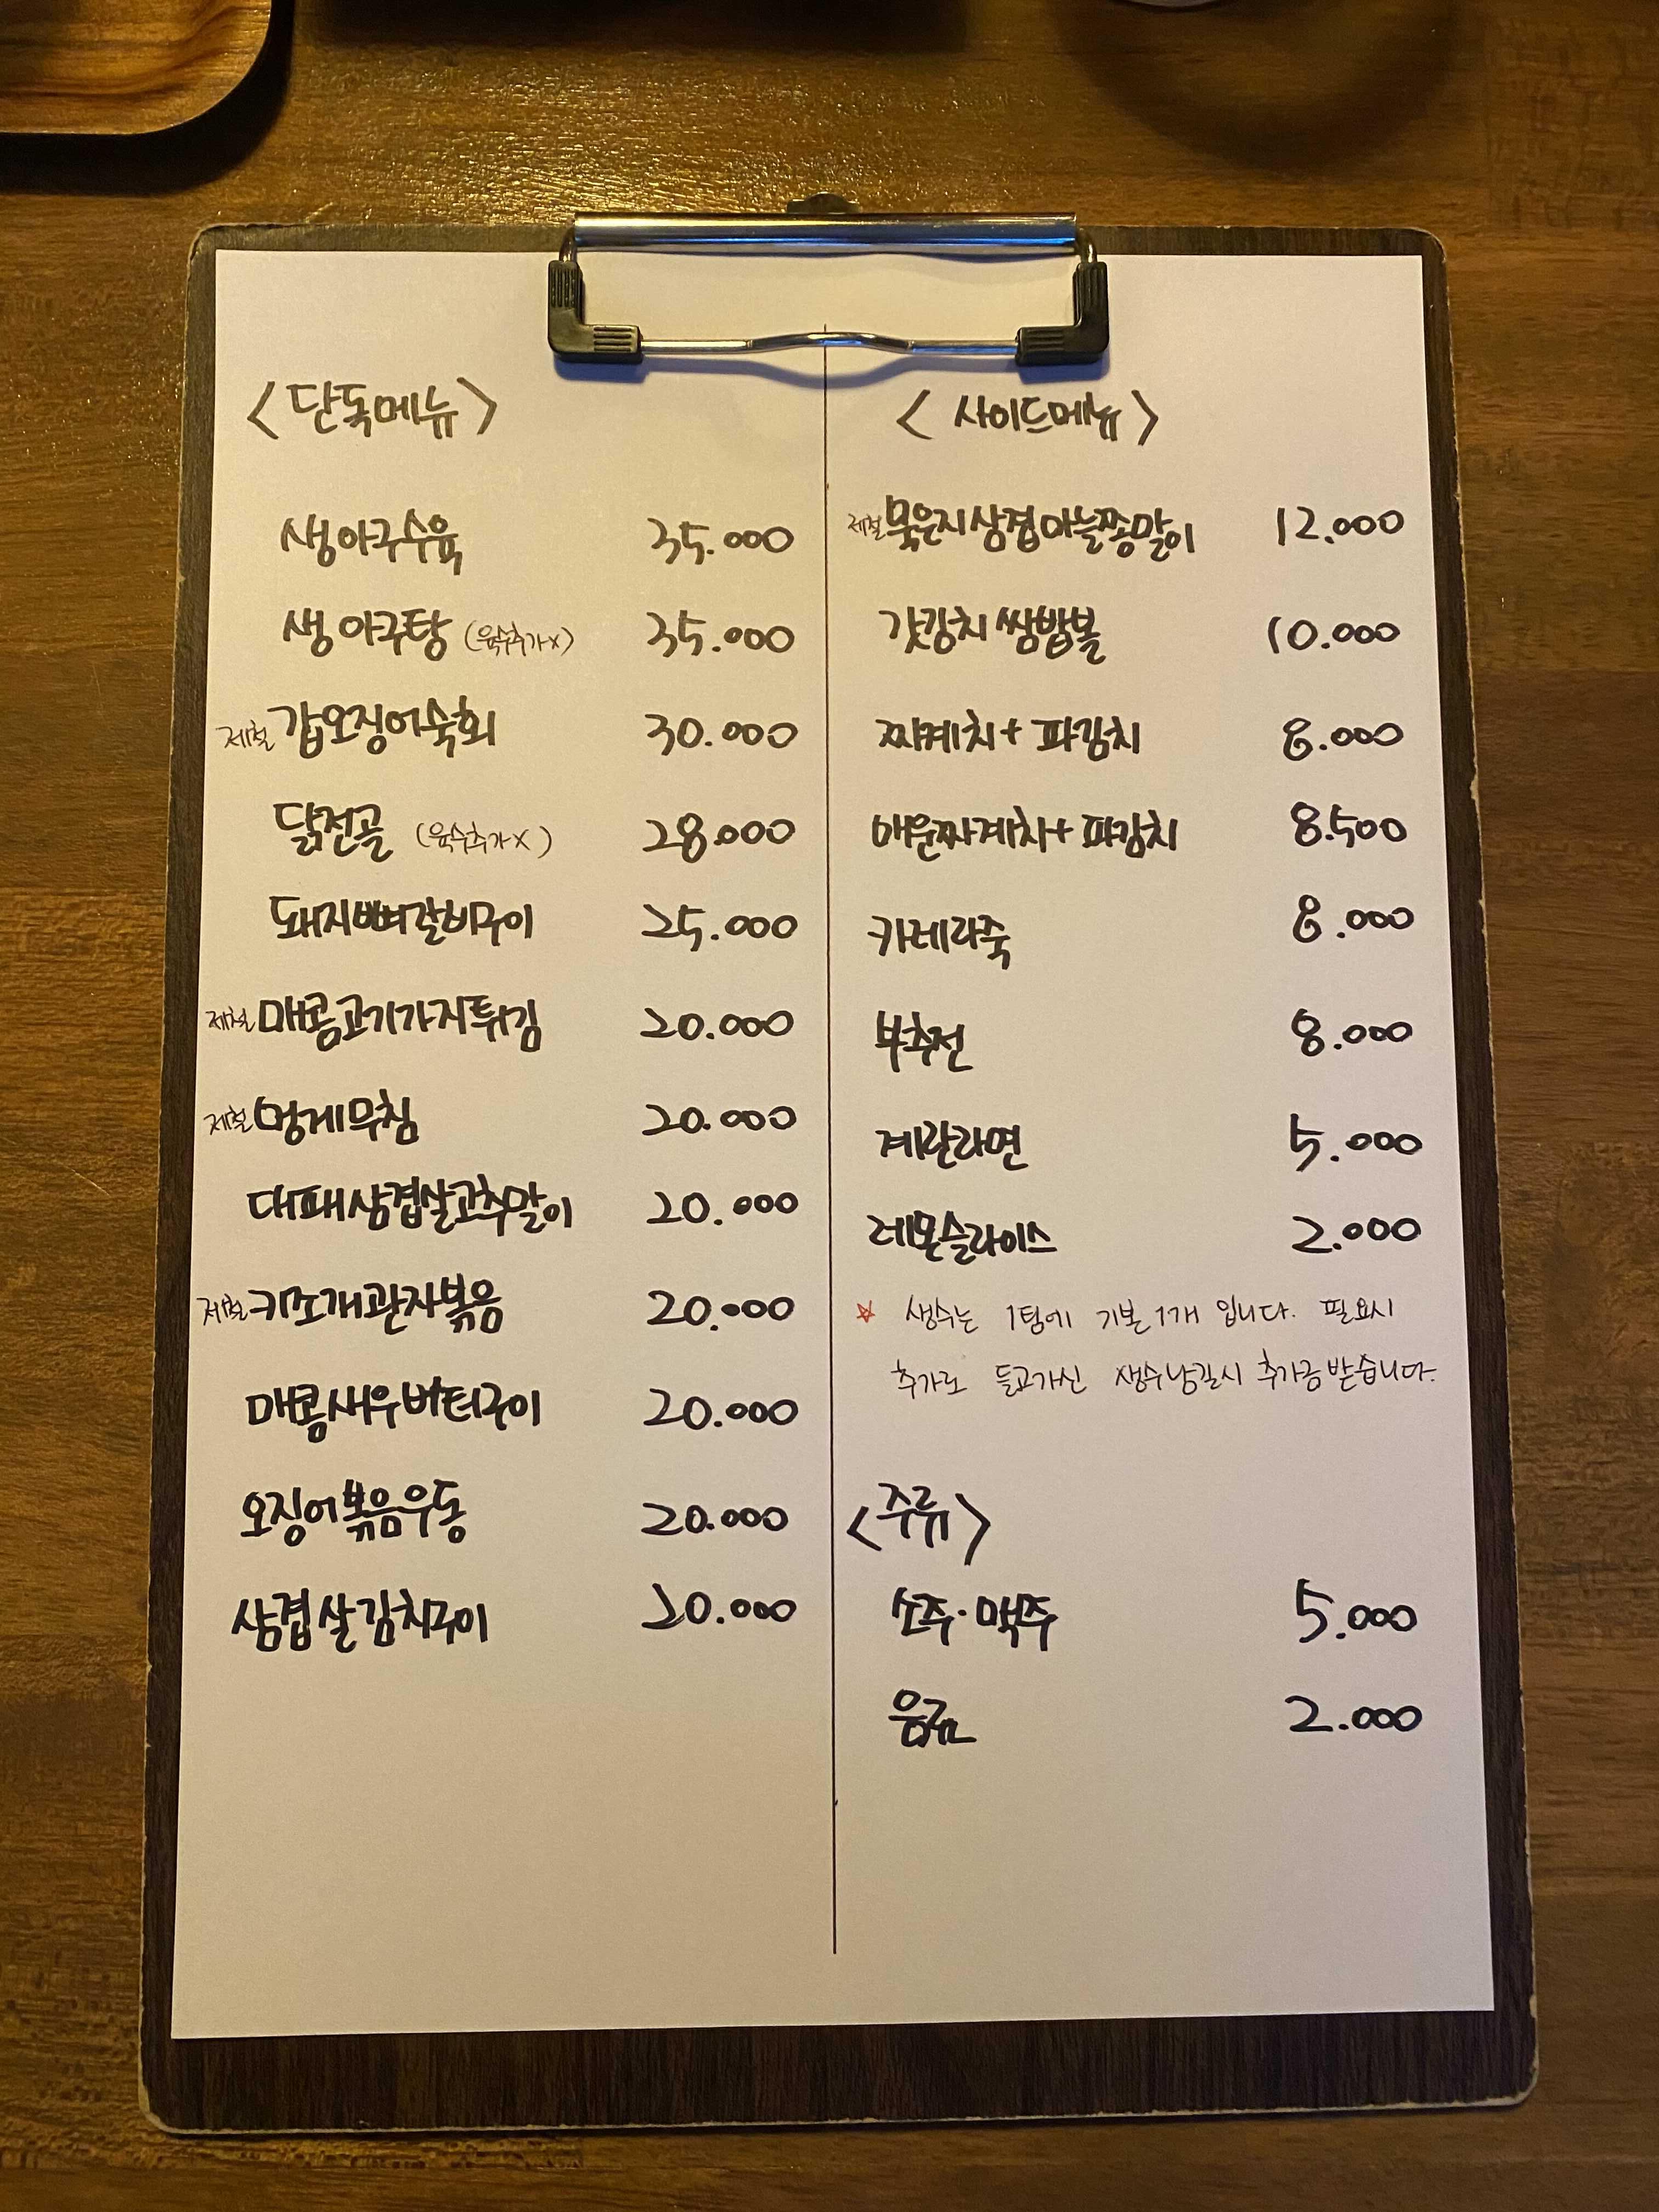 <단독메뉴>
생아구수육 35.000
생아구탕 (육수추가x) 35.000
제철 갑오징어숙회 30.000
닭전골 (육수추가x) 28.000
돼지뼈갈비구이 25.000
제철 매콤고기가지튀김 20.000
제철 멍게무침 20.000
대패삼겹살고추말이 20.000
제철 키조개관자볶음 20.000
매콤새우버터구이 20.000
오징어볶음우동 20.000
삼겹살김치구이 20.000
<사이드메뉴>
제철 묵은지삼겹마늘쫑말이 12.000
갓김치쌈밥볼 10.000
짜계치+파김치 8.000
매운짜계치+파김치 8.500
카레라죽 8.000
부추전 8.000
계란라면 5.000
레몬슬라이스 2.000
☆ 생수는 1팀에 기본1개 입니다. 필요시
추가로 들고가신 생수남길시 추가금받습니다.
<주류>
소주·맥주 5.000
음료 2.000